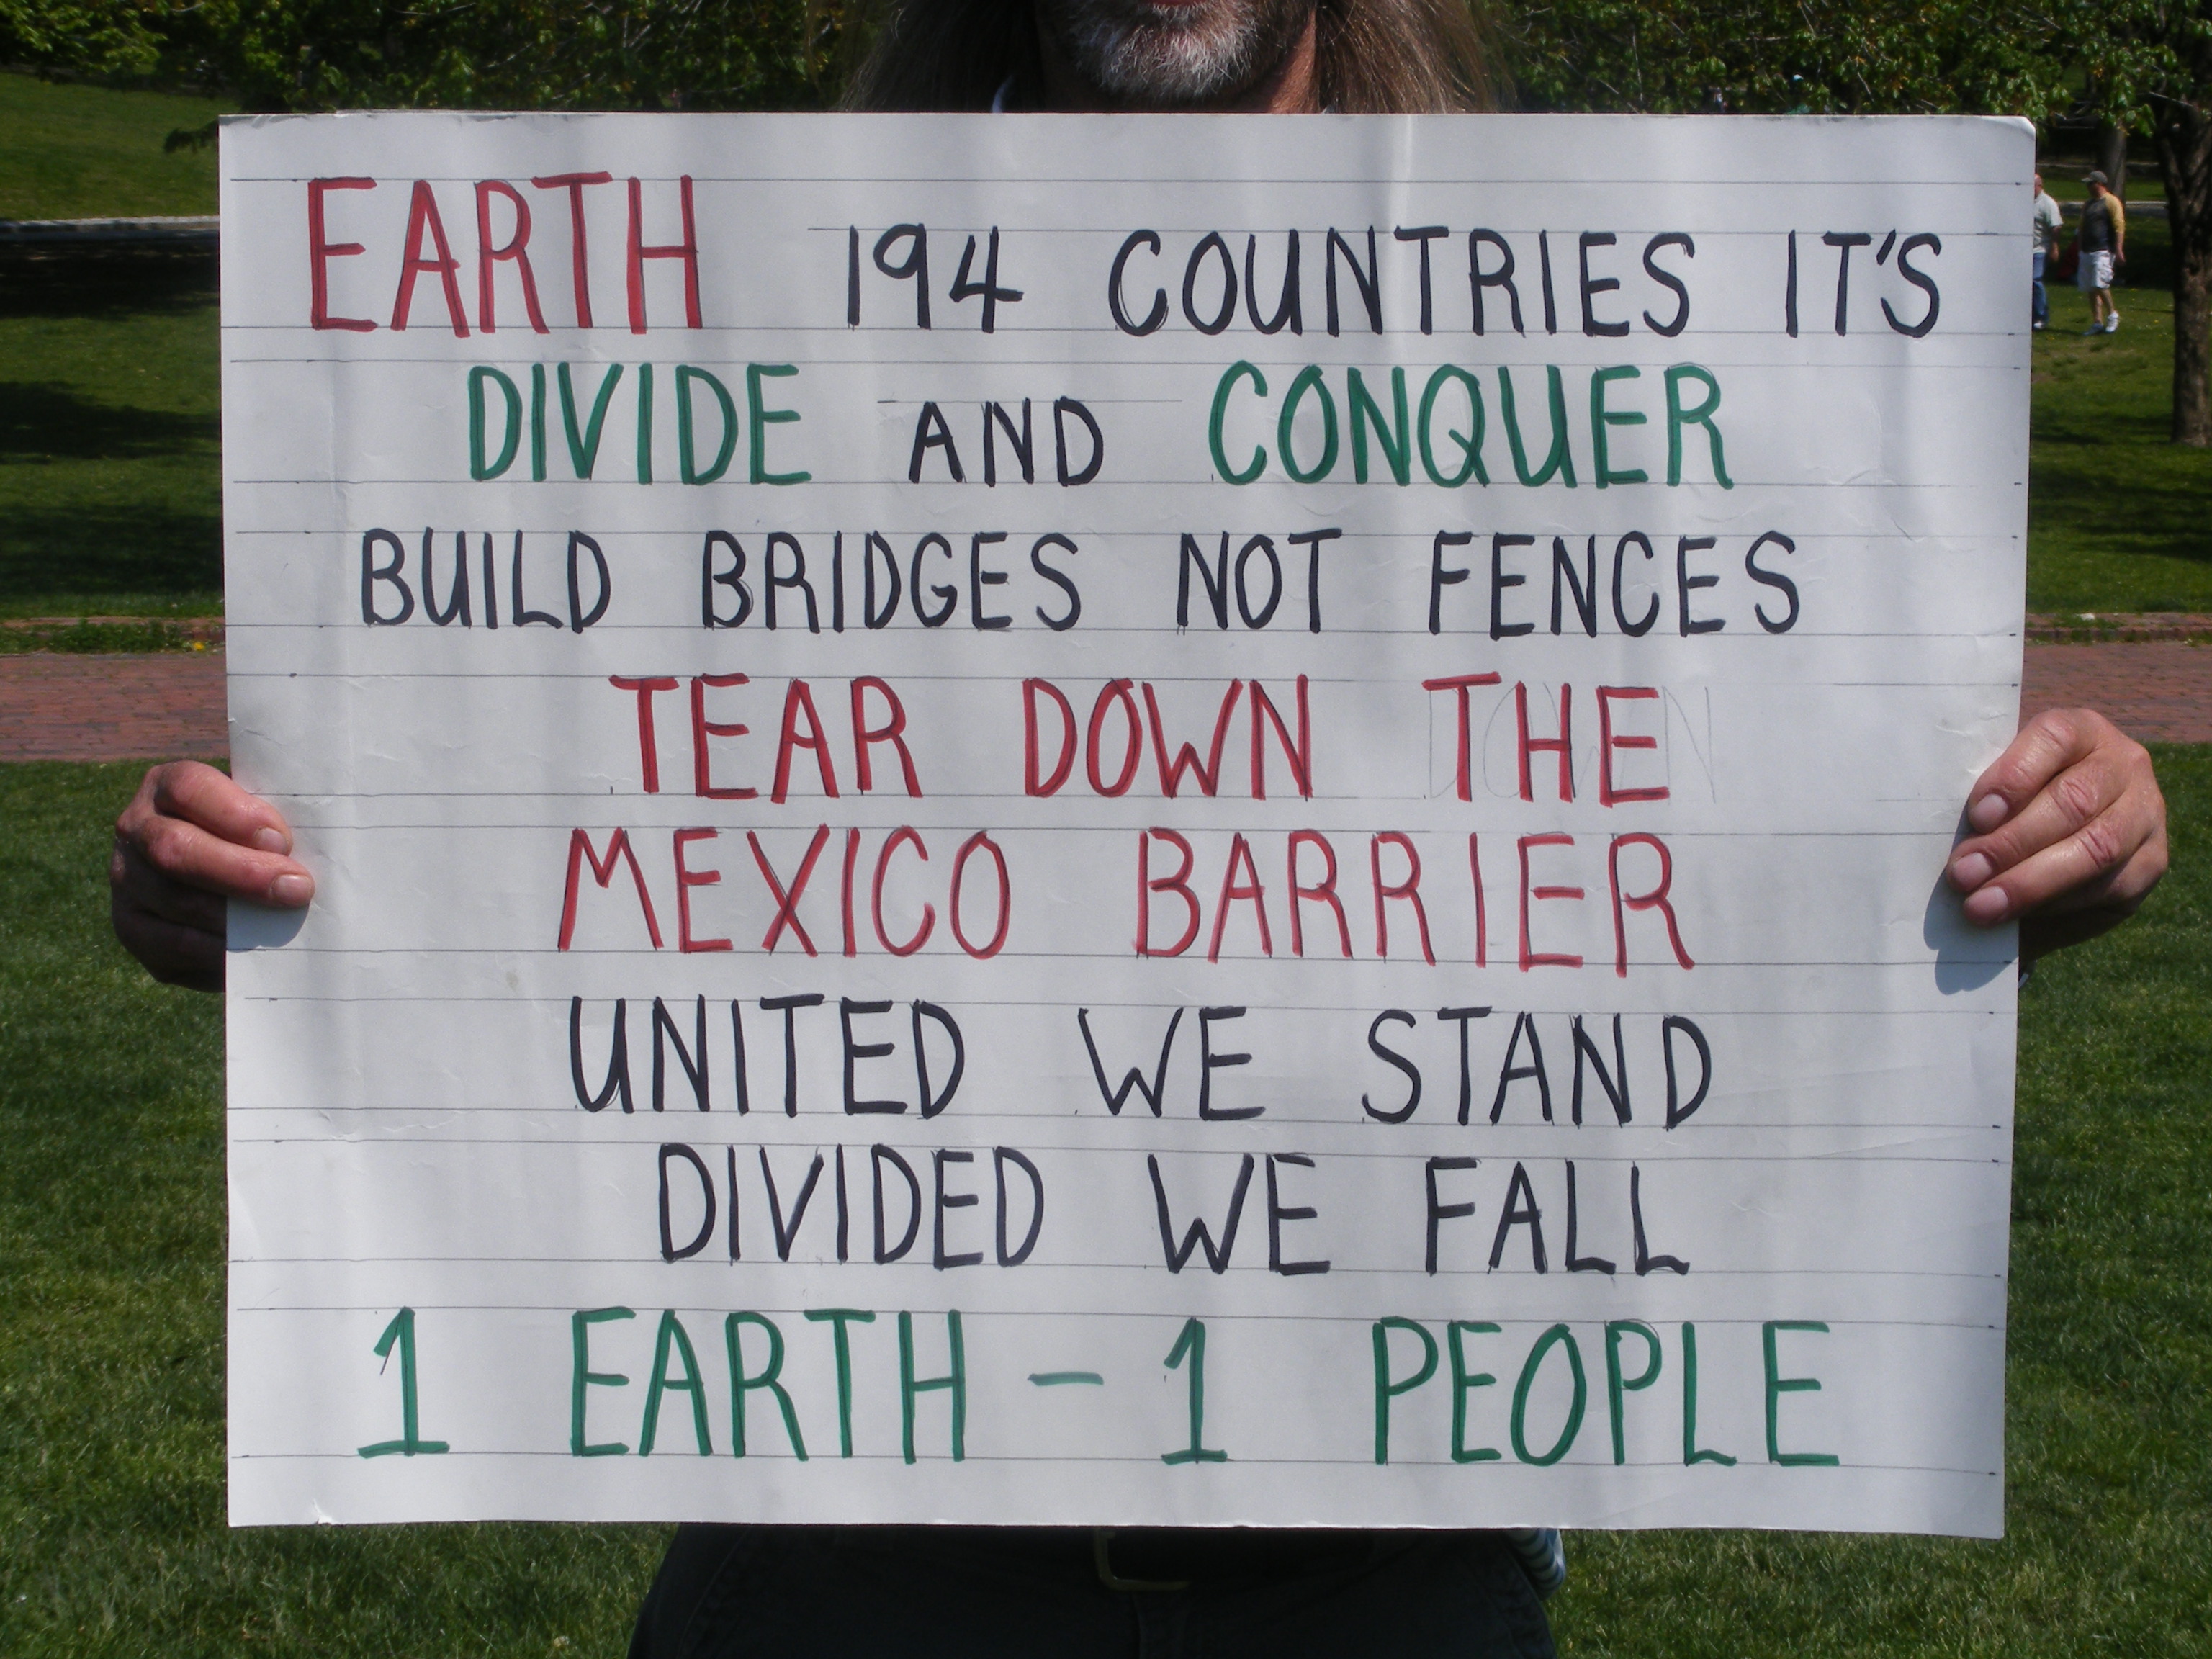 EARTH 194 COUNTRIES IT'S
DIVIDE AND CONQUER
BUILD BRIDGES NOT FENCES
TEAR DOWN THE
MEXICO BARRIER
UNITED WE STAND
DIVIDED WE FALL
1 EARTH - 1 PEOPLE